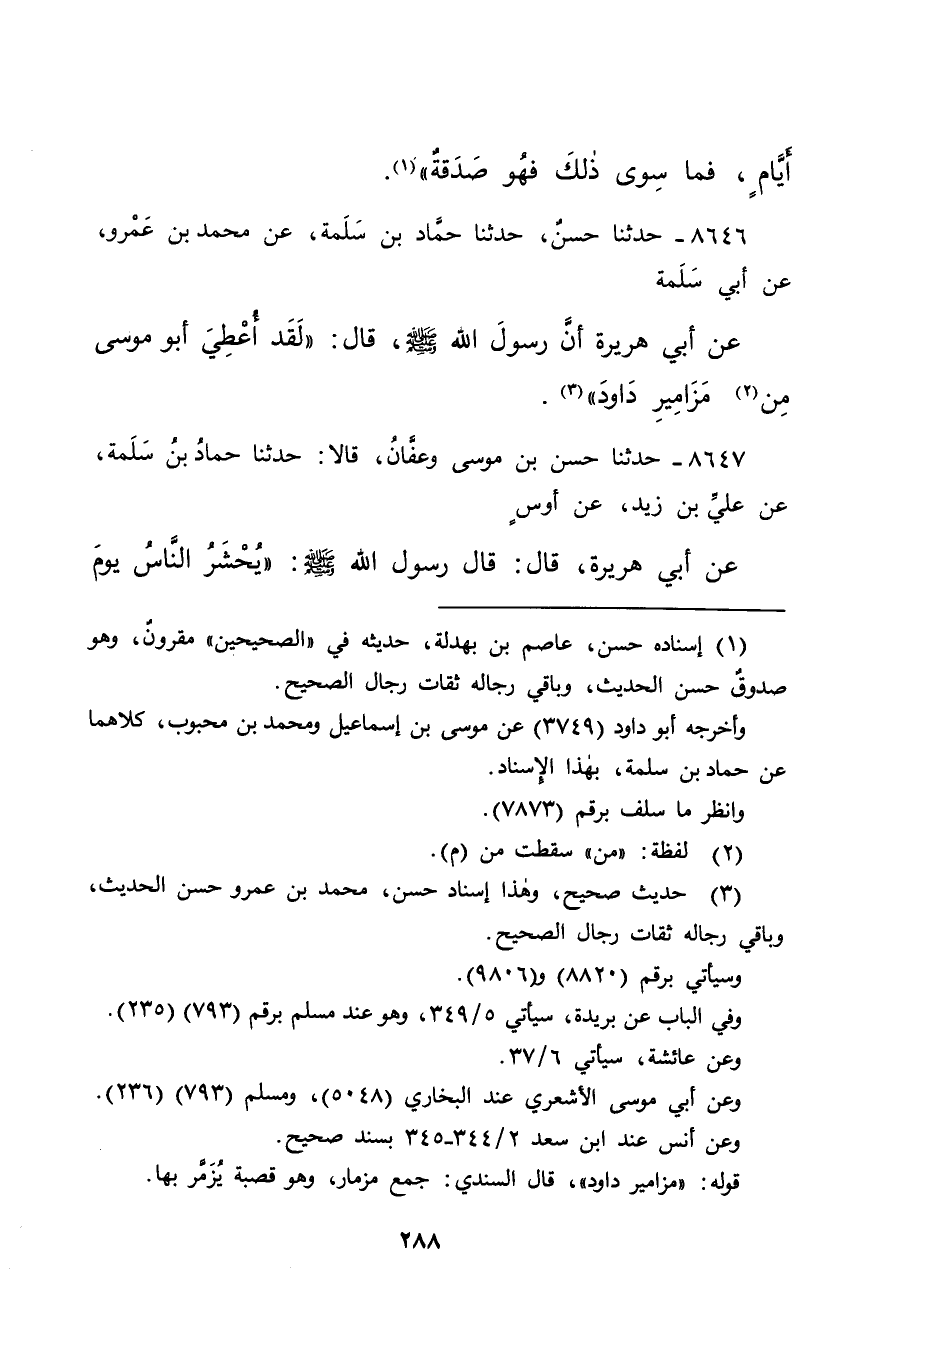 أَيَّامٍ، فما سِوى ذٰلكَ فهُو صَدَقةٌ»(١).
٨٦٤٦ـ حدثنا حسنٌ، حدثنا حمَّاد بن سَلَمة، عن محمد بن عَمْرو،
عن أبي سَلَمة
عن أبي هريرة أنَّ رسولَ الله ﷺ، قال: «لَقَد أُعْطِيَ أبو موسى
مِن(٢) مَزَامِيرِ دَاودَ»(٣).
٨٦٤٧ـ حدثنا حسن بن موسى وعفَّانُ، قالا: حدثنا حمادُ بنُ سَلَمة،
عن عليِّ بن زيد، عن أوسٍ
عن أبي هريرة، قال: قال رسول الله ﷺ: «يُحْشَرُ النَّاسُ يومَ
(١) إسناده حسن، عاصم بن بهدلة، حديثه في «الصحيحين» مقرونٌ، وهو
صدوقٌ حسن الحديث، وباقي رجاله ثقات رجال الصحيح.
وأخرجه أبو داود (٣٧٤٩) عن موسى بن إسماعيل ومحمد بن محبوب، كلاهما
عن حماد بن سلمة، بهٰذا الإسناد.
وانظر ما سلف برقم (٧٨٧٣).
(٢) لفظة: «من» سقطت من (م).
(٣) حديث صحيح، وهٰذا إسناد حسن، محمد بن عمرو حسن الحديث،
وباقي رجاله ثقات رجال الصحيح.
وسيأتي برقم (٨٨٢٠) و(٩٨٠٦).
وفي الباب عن بريدة، سيأتي ٣٤٩/٥، وهو عند مسلم برقم (٧٩٣) (٢٣٥).
وعن عائشة، سيأتي ٣٧/٦.
وعن أبي موسى الأشعري عند البخاري (٥٠٤٨)، ومسلم (٧٩٣) (٢٣٦).
وعن أنس عند ابن سعد ٣٤٤/٢ـ٣٤٥ بسند صحيح.
قوله: «مزامير داود»، قال السندي: جمع مزمار، وهو قصبة يُزَمَّر بها.
٢٨٨